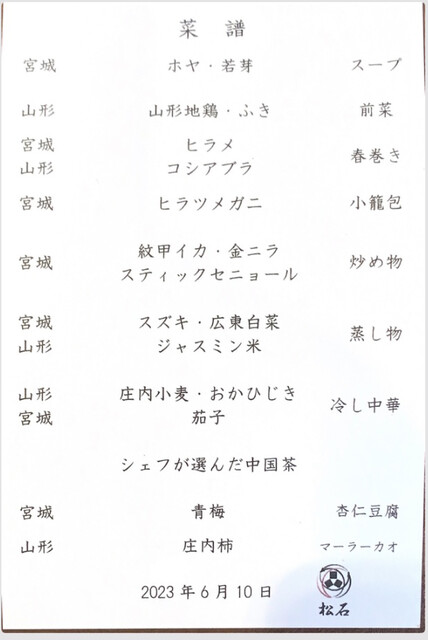 菜 譜
宮城 ホヤ・若芽 スープ
山形 山形地鶏・ふき 前菜
宮城 ヒラメ
山形 コシアブラ 春巻き
宮城 ヒラツメガニ 小籠包
宮城 紋甲イカ・金ニラ
スティックセニョール 炒め物
宮城 スズキ・広東白菜
山形 ジャスミン米 蒸し物
山形 庄内小麦・おかひじき
宮城 茄子 冷し中華
シェフが選んだ中国茶
宮城 青梅 杏仁豆腐
山形 庄内柿 マーラーカオ
2023年6月10日
松石